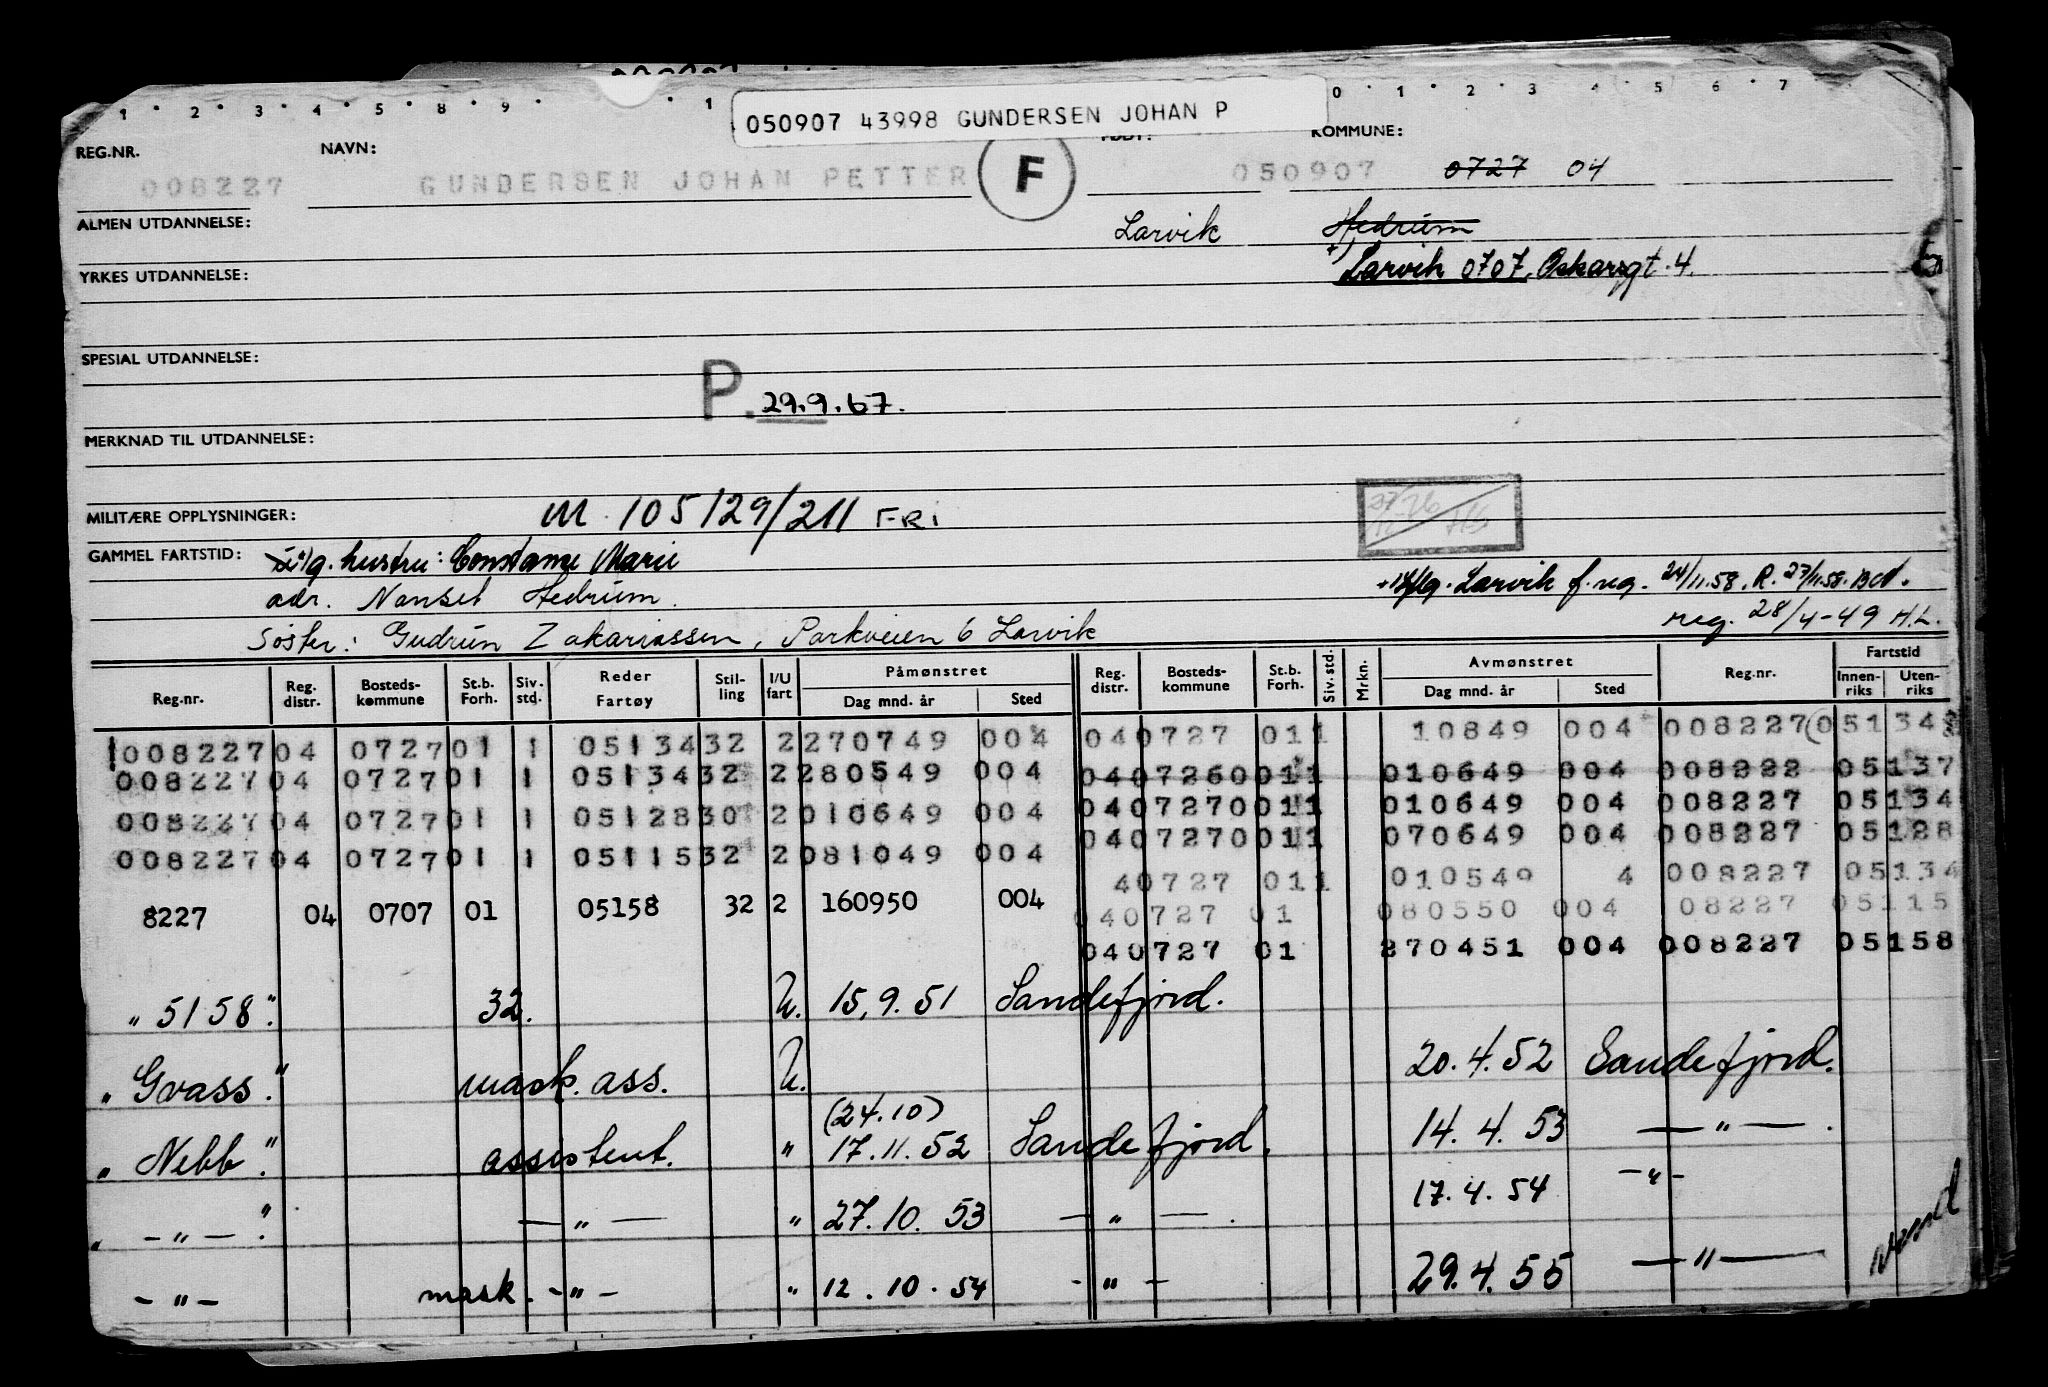 1 · 2 · 3 · 4 · 5 · 8 · 9 · · 1 0 · 1 · 2 · 3 4 · 5 · 6 · 7
050907 43998 GUNDERSEN JOHAN P
REG.NR. NAVN: KOMMUNE:
008227 GUNDERSEN JOHAN PETTER F 050907 0727 04
ALMEN UTDANNELSE: Larvik Hedrum
YRKES UTDANNELSE: Larvik 0707, Oskarsgt. 4.
SPESIAL UTDANNELSE:
P. 29.9.67.
MERKNAD TIL UTDANNELSE:
MILITÆRE OPPLYSNINGER: M. 105129/211 FRI
GAMMEL FARTSTID: g. hustru: Constanse Marie
adr. Nanset Hedrum. Larvik f. reg. 24/11.58. R. 27/11.58.
Søster: Gudrun Zakariassen, Parkveien 6 Larvik reg. 28/4-49 H.L.
Reg.nr. Reg. distr. Bosteds-kommune St.b. Forh. Siv. std. Reder Fartøy Stil-ling I/U fart Påmønstret Dag mnd. år Sted Reg. distr. Bosteds-kommune St.b. Forh. Siv. std. Mrkn. Avmønstret Dag mnd. år Sted Reg.nr. Fartstid Innen-riks Uten-riks
008227 04 0727 01 1 05134 32 2 270749 004 04 0727 01 1 10849 004 008227 05134
008227 04 0727 01 1 05134 32 2 280549 004 04 0726 0 01 1 010649 004 008222 05137
008227 04 0727 01 1 05128 30 2 010649 004 04 0727 0 01 1 010649 004 008227 05134
04 0727 0 01 1 070649 004 008227 05128
008227 04 0727 01 1 05115 32 2 081049 004
4 0727 01 1 010549 4 008227 05134
8227 04 0707 01 05158 32 2 160950 004 04 0727 01 080550 004 08227 05115
04 0727 01 270451 004 008227 05158
„ 5158." 32. U. 15.9.51 Sandefjord.
„ Gvass." mask. ass. U. 20.4.52 Sandefjord.
(24.10)
„ Nebb." assistent. " 17.11.52 Sandefjord. 14.4.53 — " — .
„ — " — ." — " — " 27.10.53 — " — . 17.4.54 — " —
— " — mask. — " — " 12.10.54 — " — 29.4.55 — " —
vend